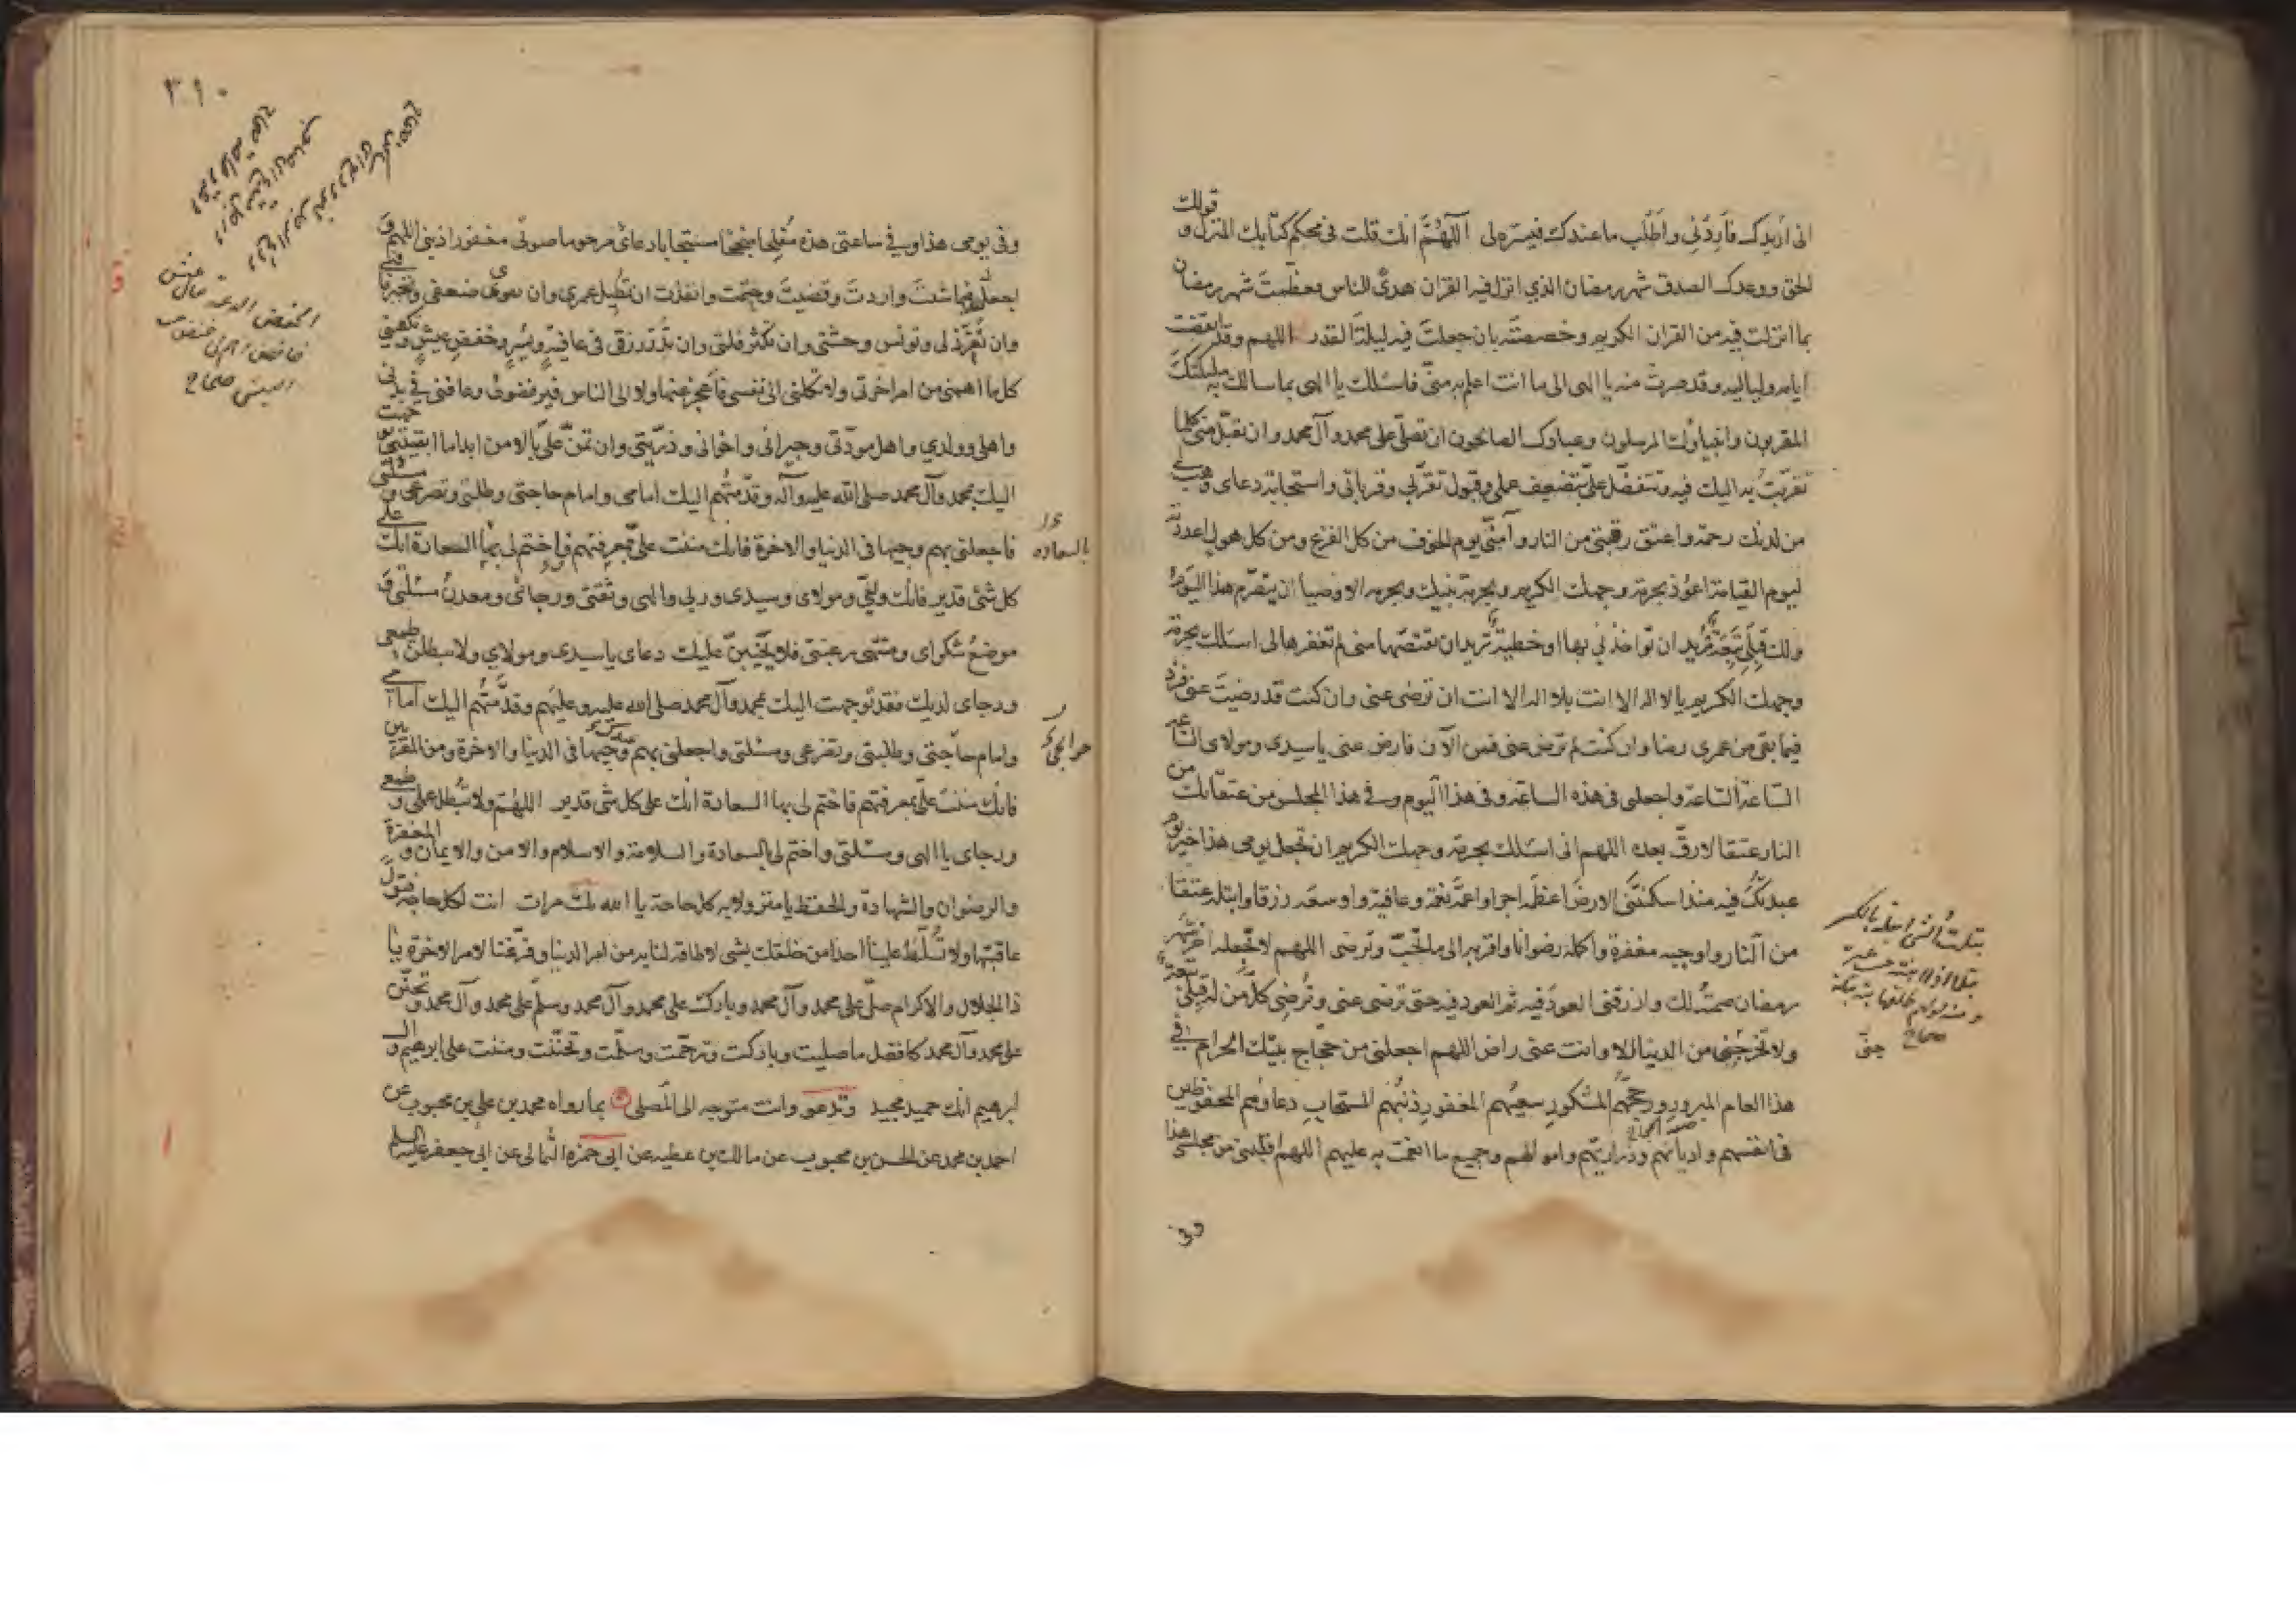 انى اُريدك فأَرِدْنِي واَطْلُب ما عندك فيسّره لى اَللّهُمَّ انك قلت فى محكم كتابك المنزل و قولك
الحق ووعدك الصدق شهر رمضان الذي انزل فيه القران هدىً للناس فعظّمت شهر رمضان
بما انزلت فيه من القران الكريم وخصصته بان جعلتَ فيه ليلة القدر اللهم وقد انقضت
ايامه ولياليه وقد صرتُ منه يا الهى الى ما انت اعلم به منّى فاسئلك يا الهى بما سالك به ملئكتك
المقربون وانبياؤك المرسلون وعبادك الصالحون ان تصلّى على محمد وآل محمد وان تقبل منى كلما
تقربتُ به اليك فيه وتتفضّل علىّ بتضعيف عملى وقبول تقرّبي وقرباتى واستجابة دعاى وهب لى
من لدنك رحمة واعتق رقبتى من النار وآمنّى يوم الخوف من كل الفزع ومن كل هول اعددته
ليوم القيامة اعُوذ بحرمة وجهك الكريم وبحرمة نبيك وبحرمة الاوصياء ان يتصرّم هذا اليوم
ولك قِبلى تبِعَة تُريد ان تواخذنى بها او خطيئة تريد ان تقتصّها منى لم تغفرها لى اسئلك بحرمة
وجهك الكريم يا لا اله الا انت بلا اله الا انت ان ترضى عنى وان كنت قد رضيت عنى فزد
فيما بقى من عمرى رضا وان كنت لم ترض عنى فمن الآن فارض عنى يا سيدى ومولاى الساعة
السّاعة السّاعة واجعلنى فى هذه الساعة وفى هذا اليوم وفى هذا المجلس من عتقائك من
النار عتقا لا رقّ بعده اللهم انى اسئلك بحرمة وجهك الكريم ان تجعل يومى هذا خير يوم
عبدتُك فيه منذ اسكنتَنى الارض اعظمه اجرا واعمّه نعمة وعافية واوسعه رزقا وابتله عتقا
من النار واوجبه مغفرة واكمله رضوانا واقربه الى ما تحبّ وترضى اللهم لا تجعله اخر شهر
رمضان صمته لك وارزقنى العود فيه ثم العود فيه حتى ترضى عنى وتُرضى كلّ من له قبلى تبعة
ولا تخرجنى من الدنيا الا وانت عنى راض اللهم اجعلنى من حجاج بيتك الحرام فى
هذا العام المبرور حجهم المشكور سعيهم المغفور ذنبهم المستجاب دعاؤهم المحفوظين
فى انفسهم واديانهم وذراريهم واموالهم وجميع ما انعمت به عليهم اللهم اقلبنى من مجلسى هذا
وفى
بتلت الشئ ابتله بالكسر
صحاح
٣١٠
وفى يومى هذا وفى ساعتى هذه مُفلِحا مُنجحا مستجابا دعائى مرحوما صوتى مغفورا ذنبى اللهم و
اجعلنى فيما شئت واردت وقضيت وحتمت وانفذت ان تطيل عمرى وان تقوى ضعفى وتجبر فاقتى
وان تُعزّ ذلى وتونس وحشتى وان تكثر قلتى وان تدرّ رزقى فى عافية ويُسر وخفض عيش وتكفينى
كل ما اهمنى من امر اخرتى ولا تكلنى الى نفسى فاَعجز عنها ولا الى الناس فيرفضونى وعافنى فى بدنى
واهلى وولدي واهل مودّتى وجيرانى واخوانى وذرّيتى وان تمنّ علىّ بالامن ابدا ما ابقيتنى توجهت
اليك بمحمد وآل محمد صلى الله عليه وآله وقدّمتهُم اليك امامى وامام حاجتى وطلبتى وتضرعى ومسئلتى
فاجعلنى بهم وجيها فى الدنيا والاخرة فانك مننت علىّ بمعرفتهم فاختم لى بها السعادة انك على
كل شئ قدير فانك وليّى ومولاى وسيدى وربى والهى وثقتى ورجائى ومعدن مسئلتى و
موضع شكواى ومنتهى رغبتى فلا يخيبنّ عليك دعاى يا سيدى ومولاي ولا تبطلنّ طمعى
ورجاى لديك فقد توجهت اليك بمحمد وآل محمد صلى الله عليه وعليهم وقدّمتهُم اليك امامى
وامام حاجتى وطلبتى وتضرعى ومسئلتى واجعلنى بهم وجيها فى الدنيا والاخرة ومن المقربين
فانك مننت علىّ بمعرفتهم فاختم لى بها السعادة انك على كل شى قدير اللهم ولا تبطل عملى وطمعى
ورجاى يا الهى ومسئلتى واختم لى بالسعادة والسلامة والاسلام والامن والايمان والمغفرة
والرضوان والشهادة والحفظ يا منزولا به كل حاجة يا الله ثلث مرات انت لكل حاجة فتول
عاقبتها ولا تُسلّط علينا احدا من خلقك بشى لا طاقة لنا به من امر الدنيا وفرّغنا لامر الاخرة يا
ذا الجلال والاكرام صلّ على محمد وآل محمد وبارك على محمد وآل محمد وسلّم على محمد وآل محمد وتحنّن
على محمد وآل محمد كافضل ما صليت وباركت وترحّمت وسلّمت وتحنّنت ومننت على ابرهيم وال
ابرهيم انك حميد مجيد وتدعو وانت متوجه الى المصلى بما رواه محمد بن على بن محبوب عن
احمد بن محمد عن الحسن بن محبوب عن مالك بن عطيه عن ابى حمزه الثمالى عن ابى جعفر عليه السلم
بالسعاده
حوائجى
الخفض الدعة
صحاح